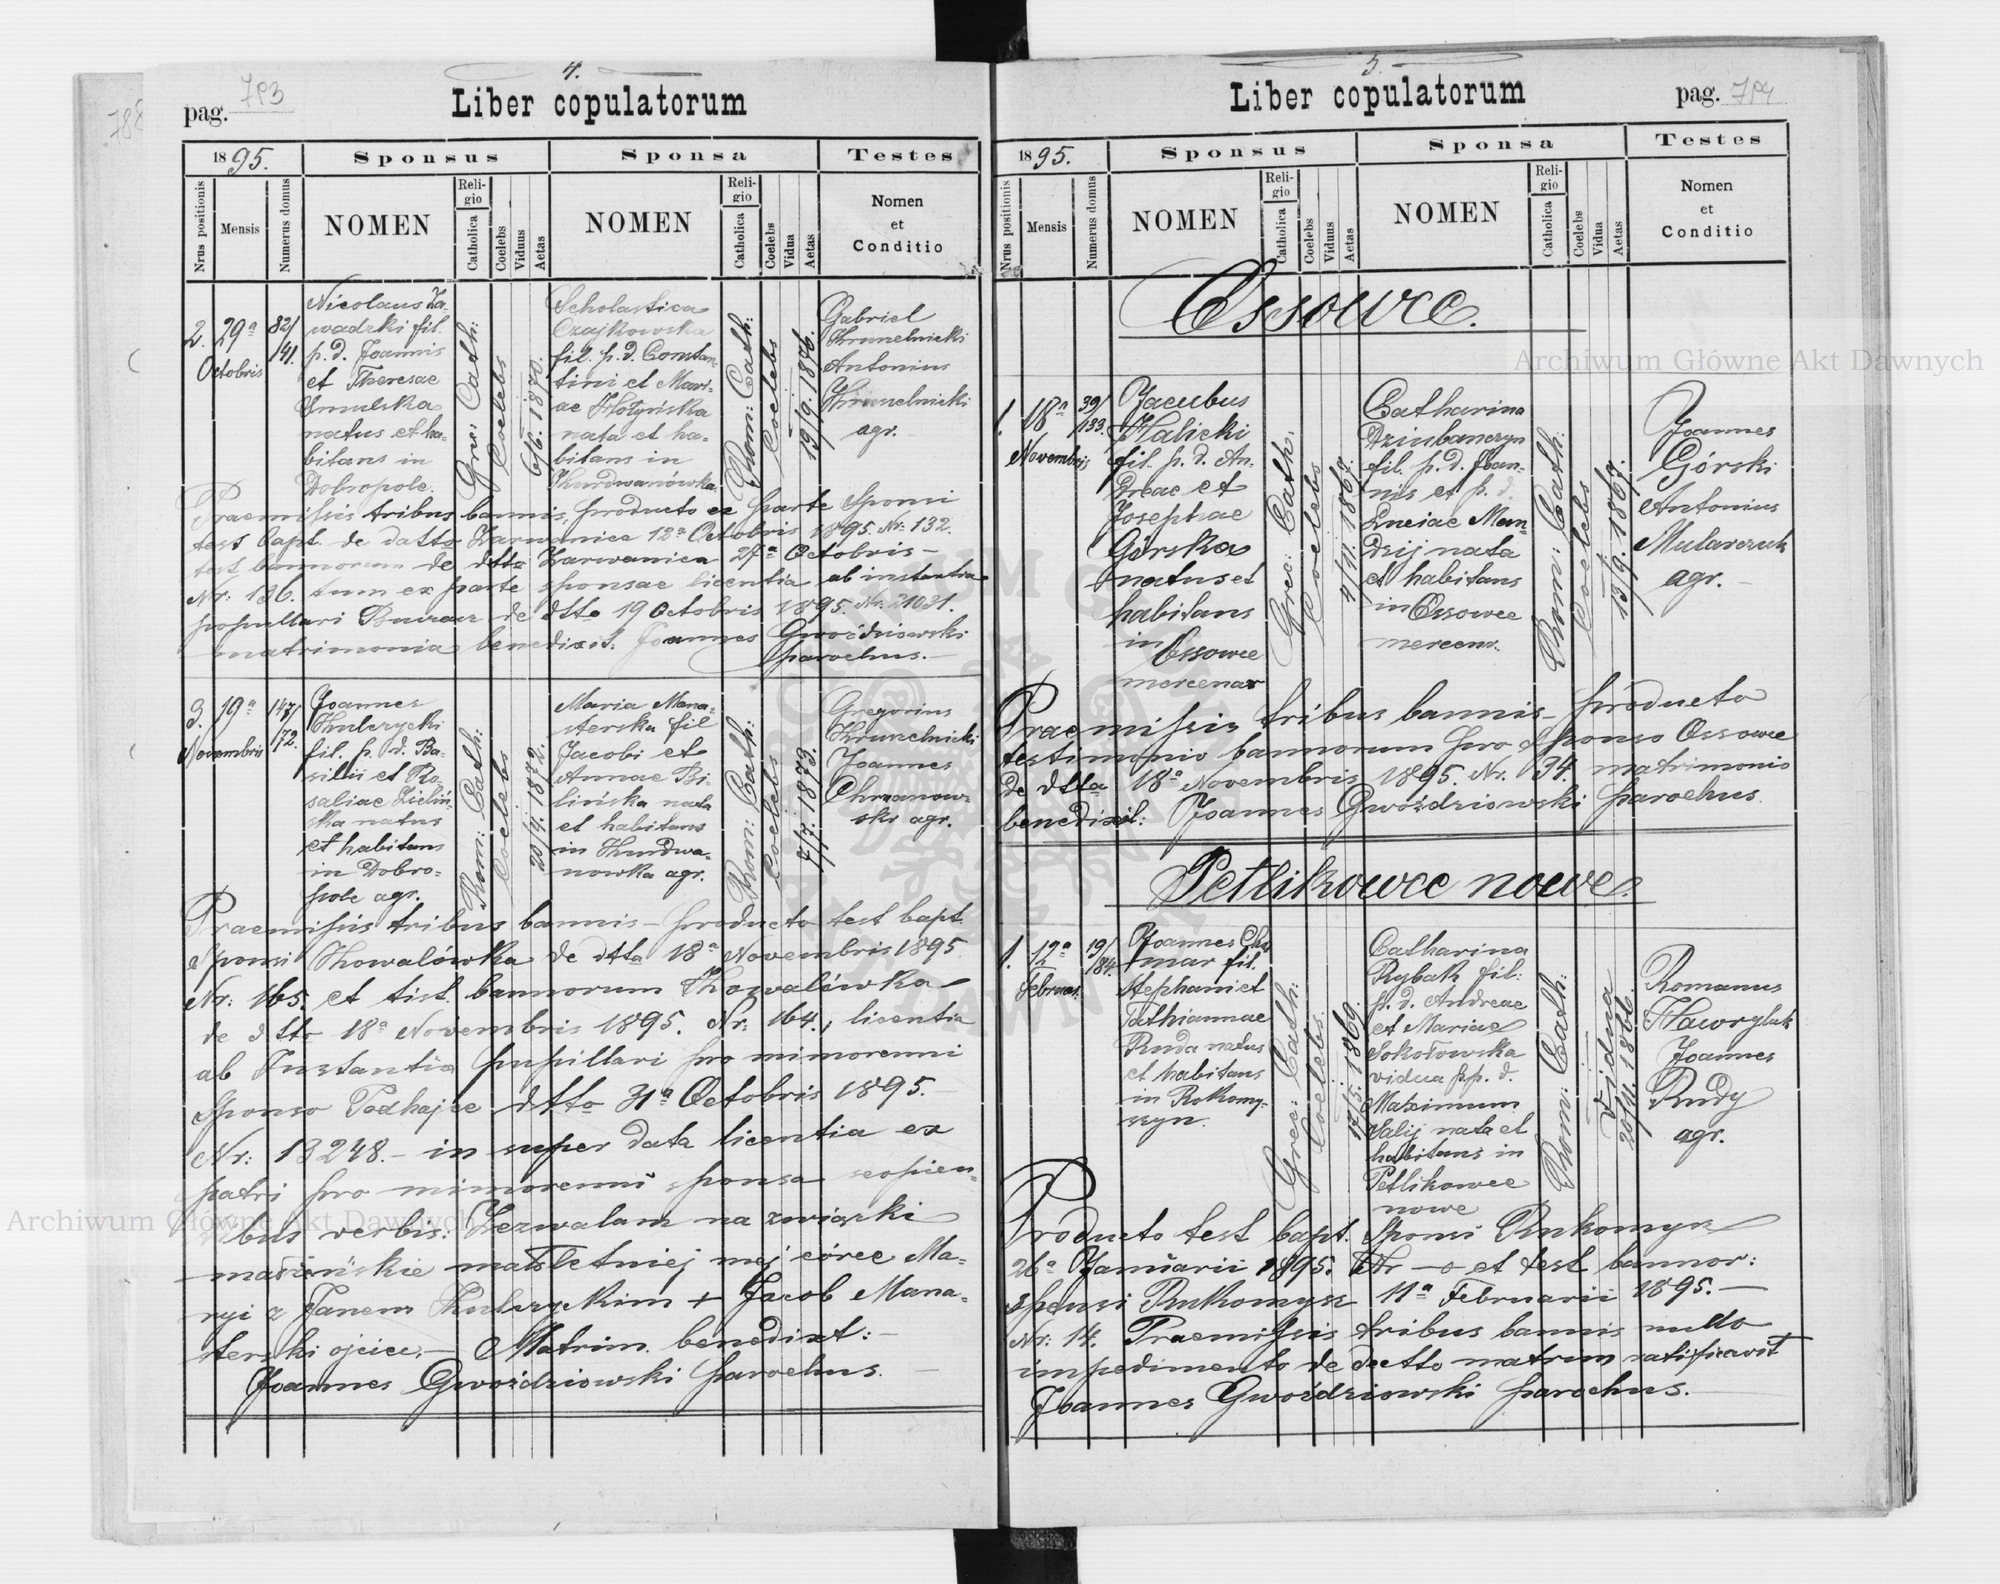 4.
pag. 793
Liber copulatorum
1895.
Sponsus
Sponsa
Testes
Nrus positionis
Mensis
Numerus domus
NOMEN
Religio
Catholica
Coelebs
Viduus
Aetas
NOMEN
Religio
Catholica
Coelebs
Vidua
Aetas
Nomen
et
Conditio
2. 29a
Octobris
82/
141.
Nicolaus Za-
wadzki fil.
p. d. Joannis
et Theresae
natus et ha-
bitans in
Dobropole.
Grc. Cath:
Coelebs
6/6. 1870.
Scholastica
Czajkowska
fil. p. d. Constan-
tini et Mari-
ae Hołyńska
nata et ha-
bitans in
Kurdwanówka.
Rom: Cath:
Coelebs
19/9. 1876.
Gabriel
Krumelnicki
Antonius
Krumelnicki
agr.
Praemissis tribus bannis, producto ex parte Sponsi
test bapt. de datto Zarwanice 12a Octobris 1895. Nr: 132.
test bannorum de dtto Zarwanica 27a Octobris –
Nr: 136. tum ex parte sponsae licentia ab instantia
pupillari de dtto 19 Octobris 1895. Nr: 21031.
matrimonia benedixit: Joannes Gwoździowski
parochus. –
3. 19a
Novembris
147/
72.
Joannes
Kulczycki
fil. p. d. Ba-
silii et Ro-
saliae Zieliń-
ska natus
et habitans
in Dobro-
pole agr.
Rom: Cath:
Coelebs
20/4. 1872.
Maria Mana-
sterska fil
Jacobi et
Annae Bi-
lińska nata
et habitans
in Kurdwa-
nowka agr.
Rom: Cath:
Coelebs
7/7. 1873.
Gregorius
Krumelnicki
Joannes
Chrzanow-
ski agr.
Praemissis tribus bannis – producto test bapt.
Sponsi Kowalówka de dtto 18a Novembris 1895
Nr: 165. et tist. bannorum Kowalówka
de dtto 18a Novembris 1895. Nr: 164., licentia
ab Instantia pupillari pro minorenni
Sponso Podhajce dtto 31a Octobris 1895.
Nr: 13248. – in super data licentia ex
patri pro minorenni sponsa seqvien-
tibus verbis: Zezwalam na związki
małżeńskie małoletniej mej córce Ma-
ryi z Janem Kulczyckim + Jacob Mana-
sterski ojciec. – Matrim. benedixit: –
Joannes Gwoździowski parochus. –
5.
Liber copulatorum
pag. 794
1895.
Sponsus
Sponsa
Testes
Nrus positionis
Mensis
Numerus domus
NOMEN
Religio
Catholica
Coelebs
Viduus
Aetas
NOMEN
Religio
Catholica
Coelebs
Vidua
Aetas
Nomen
et
Conditio
Ossowce.
1. 18a
Novembris
39/
133.
Jacobus
Halicki
fil. p. d. An-
dreae et
Josephae
Górska
natus et
habitans
in Ossowce
mercenar
Grec: Cath:
Coelebs
4/11. 1867.
Catharina
Dziubanczyn
fil. p. d. Joan-
nis et p. d.
Luciae Man-
dzij nata
et habitans
in Ossowce
mercenr.
Rom: Cath:
Coelebs
13/9. 1867.
Joannes
Górski
Antonius
Mularczuk
agr. –
Praemissis tribus bannis – producto
testimonio bannorum pro sponso Ossowce
de dtta 18a Novembris 1895. Nr. 34. matrimonio
benedixit: Joannes Gwoździowski parochus.
Petlikowce nowe.
1. 12a
Februar.
19/
84.
Joannes Cho-
mar fil.
Stephani et
Tathiannae
Ruda natus
et habitans
in Rokomy-
szyn.
Grec: Cath:
Coelebs
17/5. 1869.
Catharina
Rybak fil:
p. d. Andreae
et Mariae
Sokołowska
vidua p. p. d.
Maximum
Salij nata et
habitans in
Petlikowce
nowe
Rom: Cath:
Vidua
20/11. 1866.
Romanus
Hawryluk
Joannes
Rudy
agr.
Producto test bapt. Sponsi Rukomysz
26a Januarii 1895. Nr – o et test bannor:
Sponsi Rukomysz 11a Februarii 1895. –
Nr: 14. Praemissis tribus bannis nullo
impedimento de decto matrim ratificavit
Joannes Gwoździowski parochus.
Archiwum Główne Akt Dawnych
Archiwum Główne Akt Dawnych